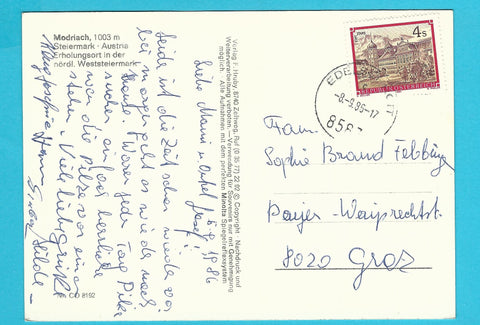 Modriach, 1003 m
Steiermark · Austria
Erholungsort in der
nördl. Weststeiermark
Verlag F. Hruby, 8740 Zeltweg, Ruf (0 35 77) 22 60 © Copyright Nachdruck und
Weiterverarbeitung verboten – Verwendung für Souvenirs nur mit Genehmigung
möglich. Alle Aufnahmen mit dem perfekten Minolta Spiegelreflexsystem
CD 8192
6.9.1986
Liebe Mami u. Onkel Josef!
Leide ist die Zeit schon wieder vor
bei morgen geht es wieder nach
Haus. Waren jeden Tag Pilze
suchen, einfach herrliche
wen die Pilze vor einem
stehen. Viele liebe Grüße
Hilde
4 S
REPUBLIK ÖSTERREICH
-8.-9.86-17
Fam.
Sophie Brand Feldbinger
Payer-Weiprechtst.
8020 Graz